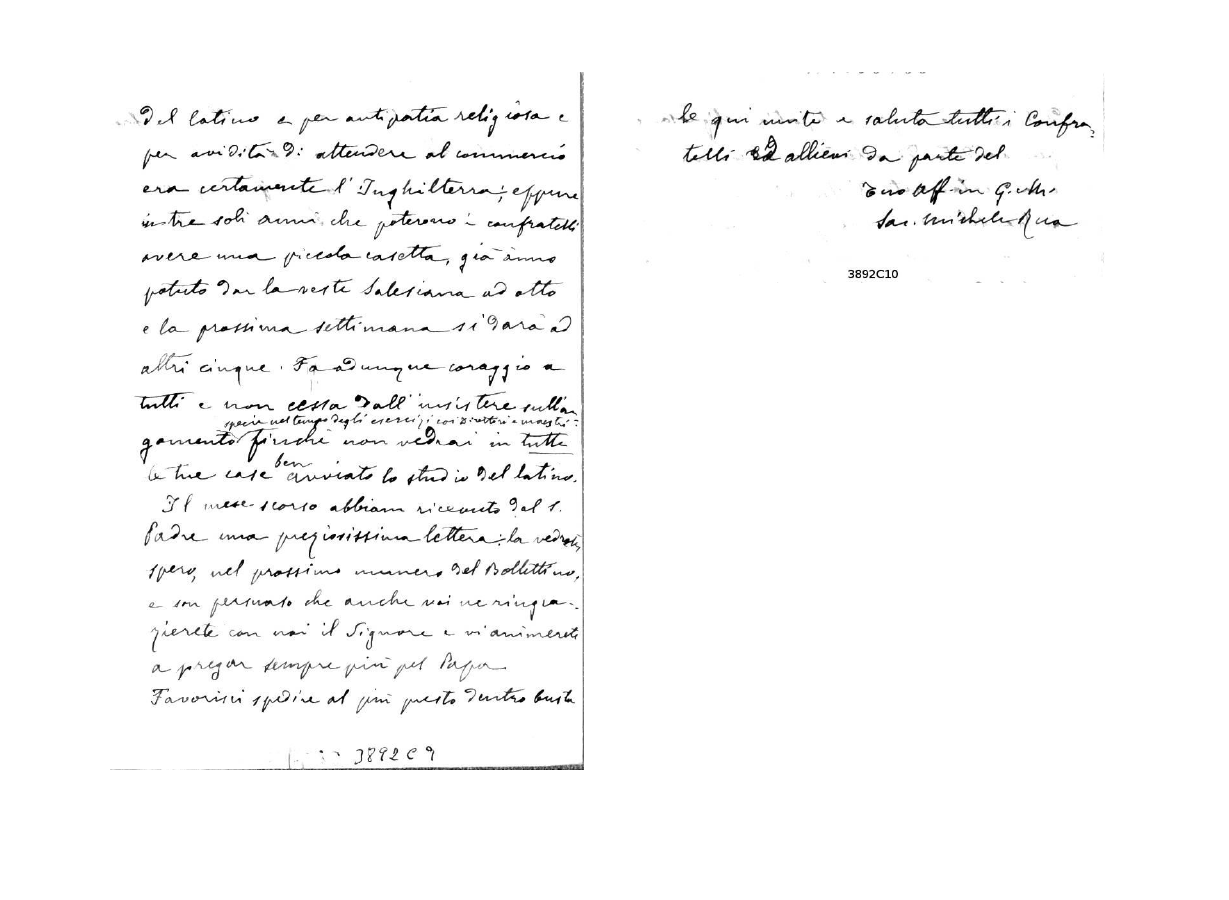 del latino e per antipatia religiosa e
per avidità di attendere al commercio
era certamente l'Inghilterra; eppure
in tre soli anni che poterono i confratelli
avere una piccola casetta, già ànno
potuto dar la veste Salesiana ad otto
e la prossima settimana si darà ad
altri cinque. Fa adunque coraggio a
tutti e non cessa dall'insistere sull'an
specie nel tempo degli esercizi coi Direttori e maestri
gomento finchè non vedrai in tutte
le tue case ben avviato lo studio del latino.
Il mese scorso abbiam ricevuto dal S.
Padre una preziosissima lettera: la vedrete,
spero, nel prossimo numero del Bollettino,
e son persuaso che anche voi ne ringra-
zierete con noi il Signore e vi animerete
a pregar sempre più pel Papa
Favorisci spedire al più presto dentro busta
3892C9
le qui unite e saluta tutti i Confra-
telli ed allievi da parte del
Tuo Aff. in G. e M.
Sac. Michele Rua
3892C10